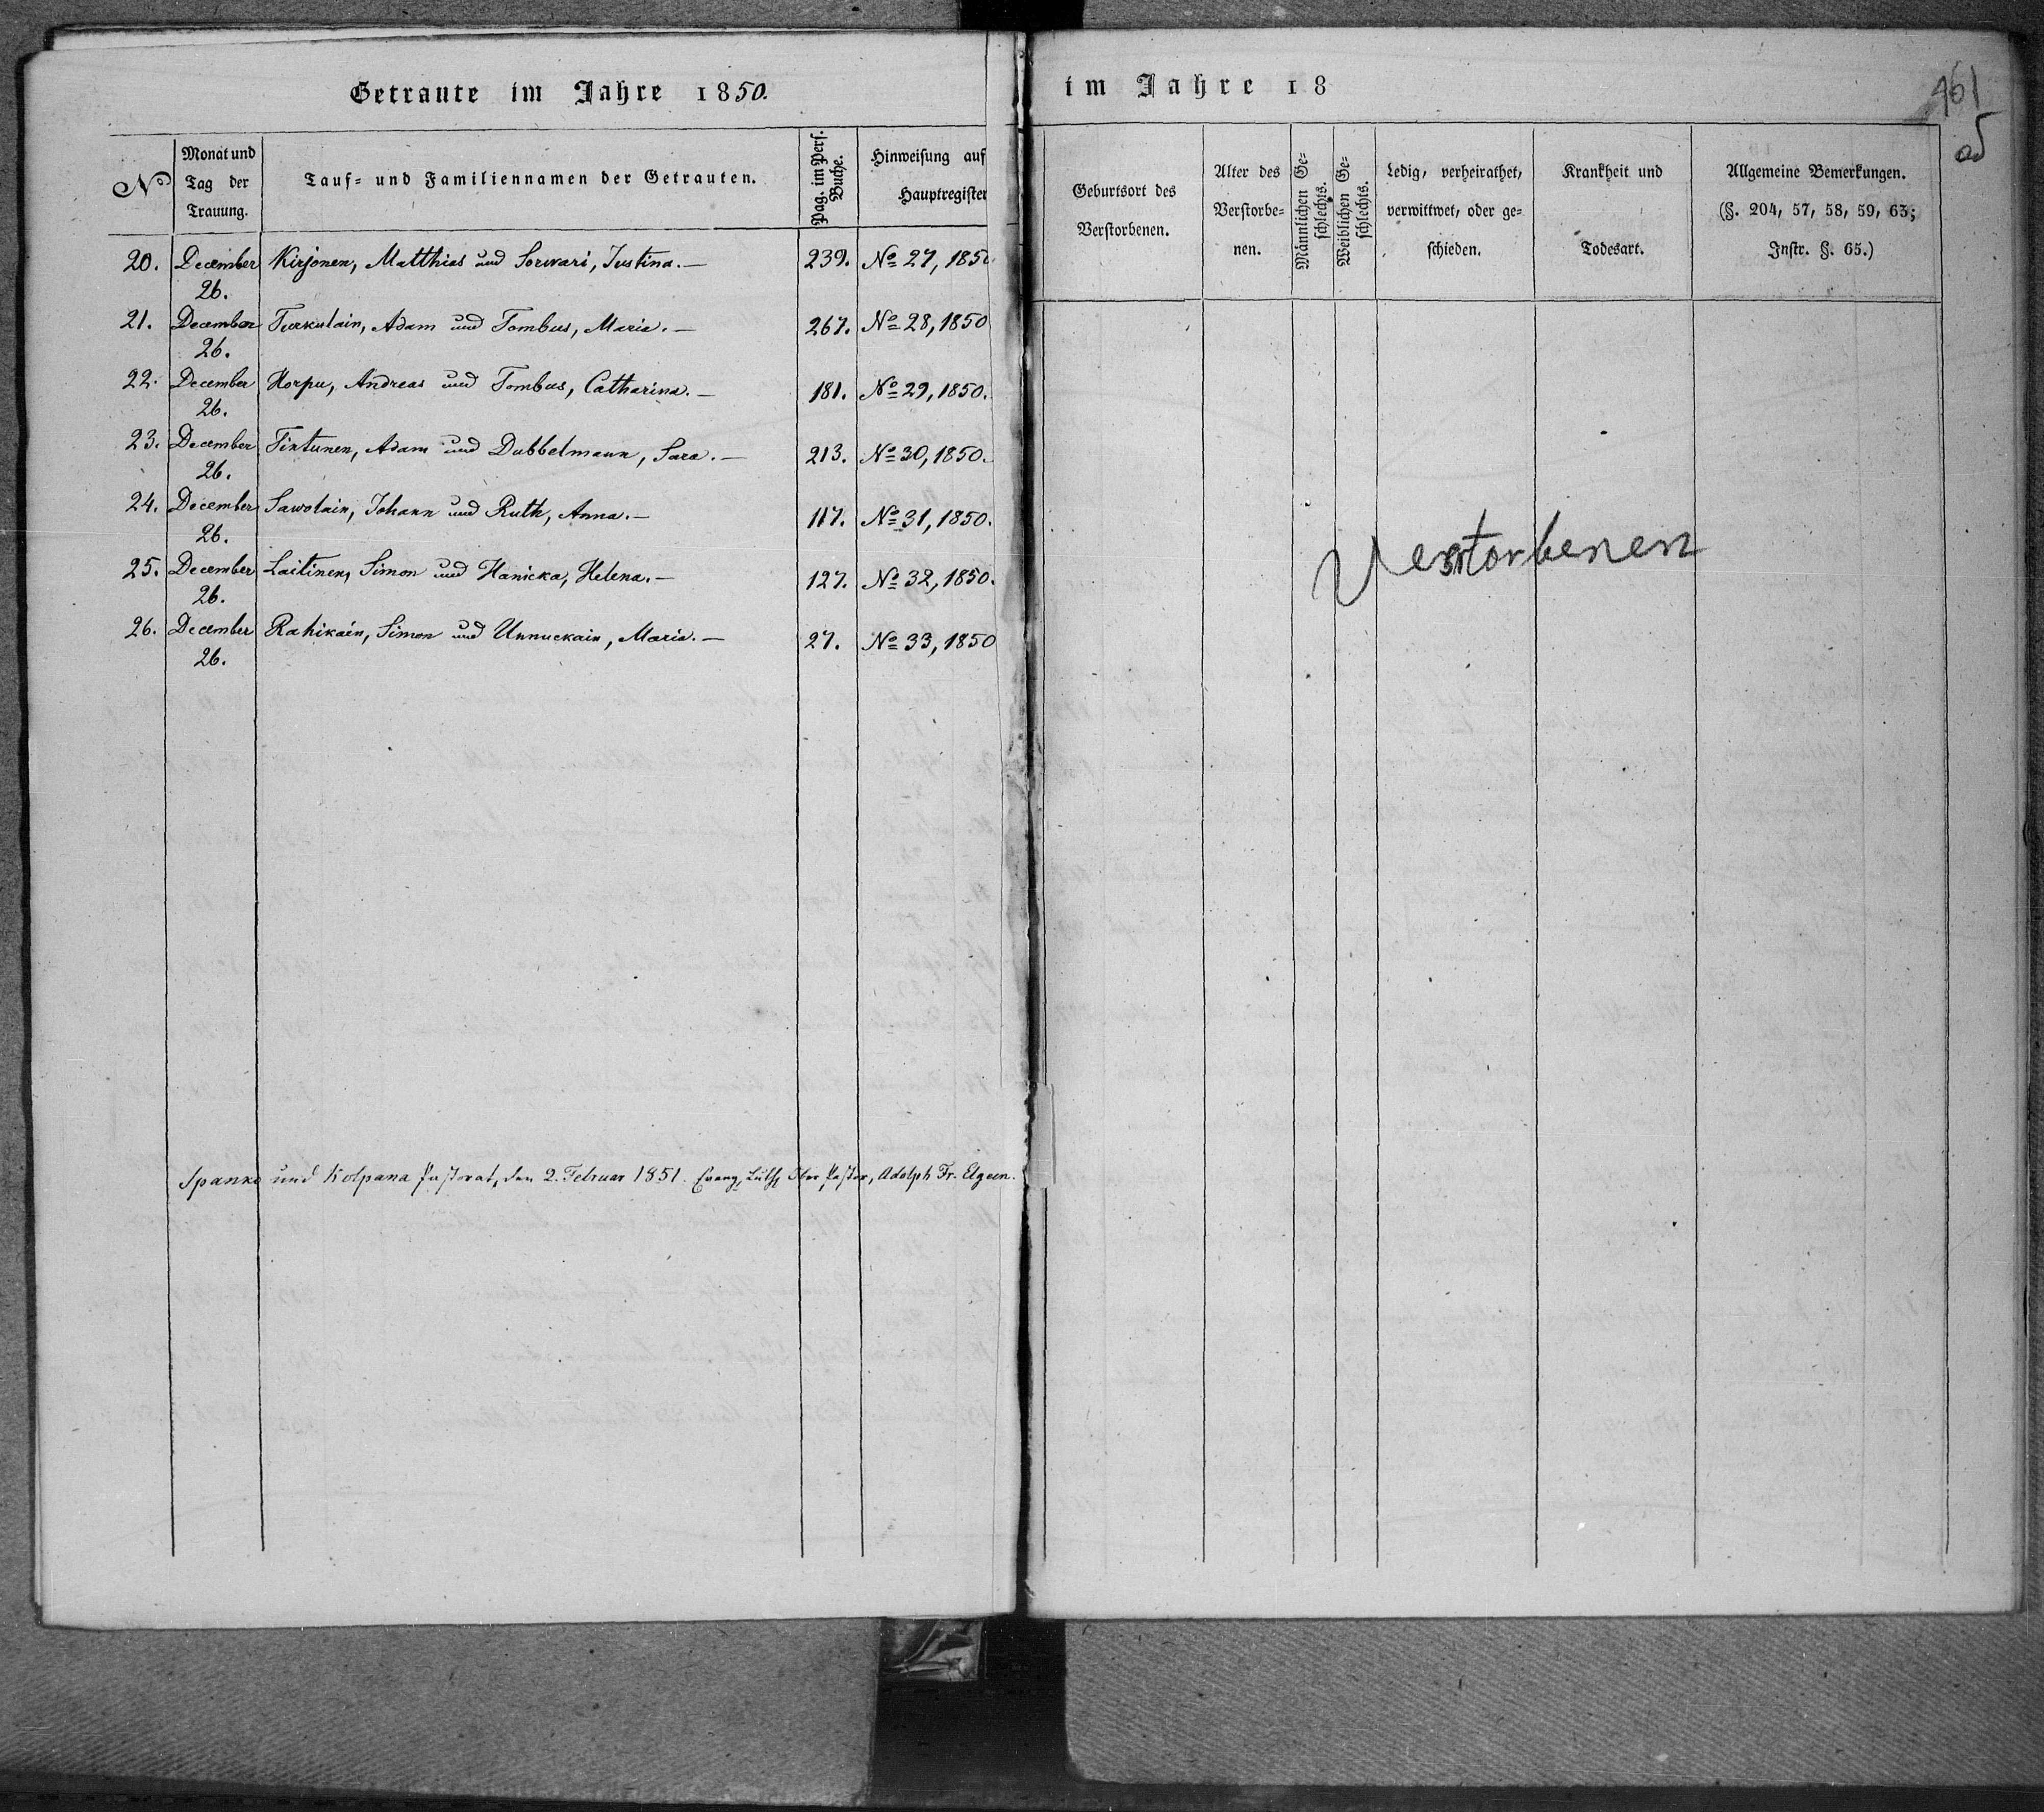 Getraute im Jahre 1850.
No
Monat und
Tag der
Trauung.
Tauf- und Familiennamen der Getrauten.
Pag. im Pers.
Buche.
Hinweisung auf
Hauptregister
20. December Kirjonen, Matthias und Sorwari, Justina. — 239. No 27, 1850
26.
21. December Turkulain, Adam und Tombus, Maria. — 267. No 28, 1850
26.
22. December Horpu, Andreas und Tombus, Catharina. — 181. No 29, 1850.
26.
23. December Tintunen, Adam und Dubbelmann, Sara. — 213. No 30, 1850.
26.
24. December Sawolain, Johann und Ruth, Anna. — 117. No 31, 1850.
26.
25. December Laitinen, Simon und Hanicka, Helena. — 127. No 32, 1850.
26.
26. December Rahikain, Simon und Unnuckain, Maria. — 27. No 33, 1850
26.
Spanko und Kolpana Pastorat, den 2. Februar 1851. Evang. Luth. Ober Pastor, Adolph Fr. Elgeen.
im Jahre 18
461
Geburtsort des
Verstorbenen.
Alter des
Verstorbe-
nen.
Männlichen Ge-
schlechts.
Weiblichen Ge-
schlechts.
Ledig, verheirathet,
verwittwet, oder ge-
schieden.
Krankheit und
Todesart.
Allgemeine Bemerkungen.
(§. 204, 57, 58, 59, 63;
Instr. §. 65.)
Verstorbenen